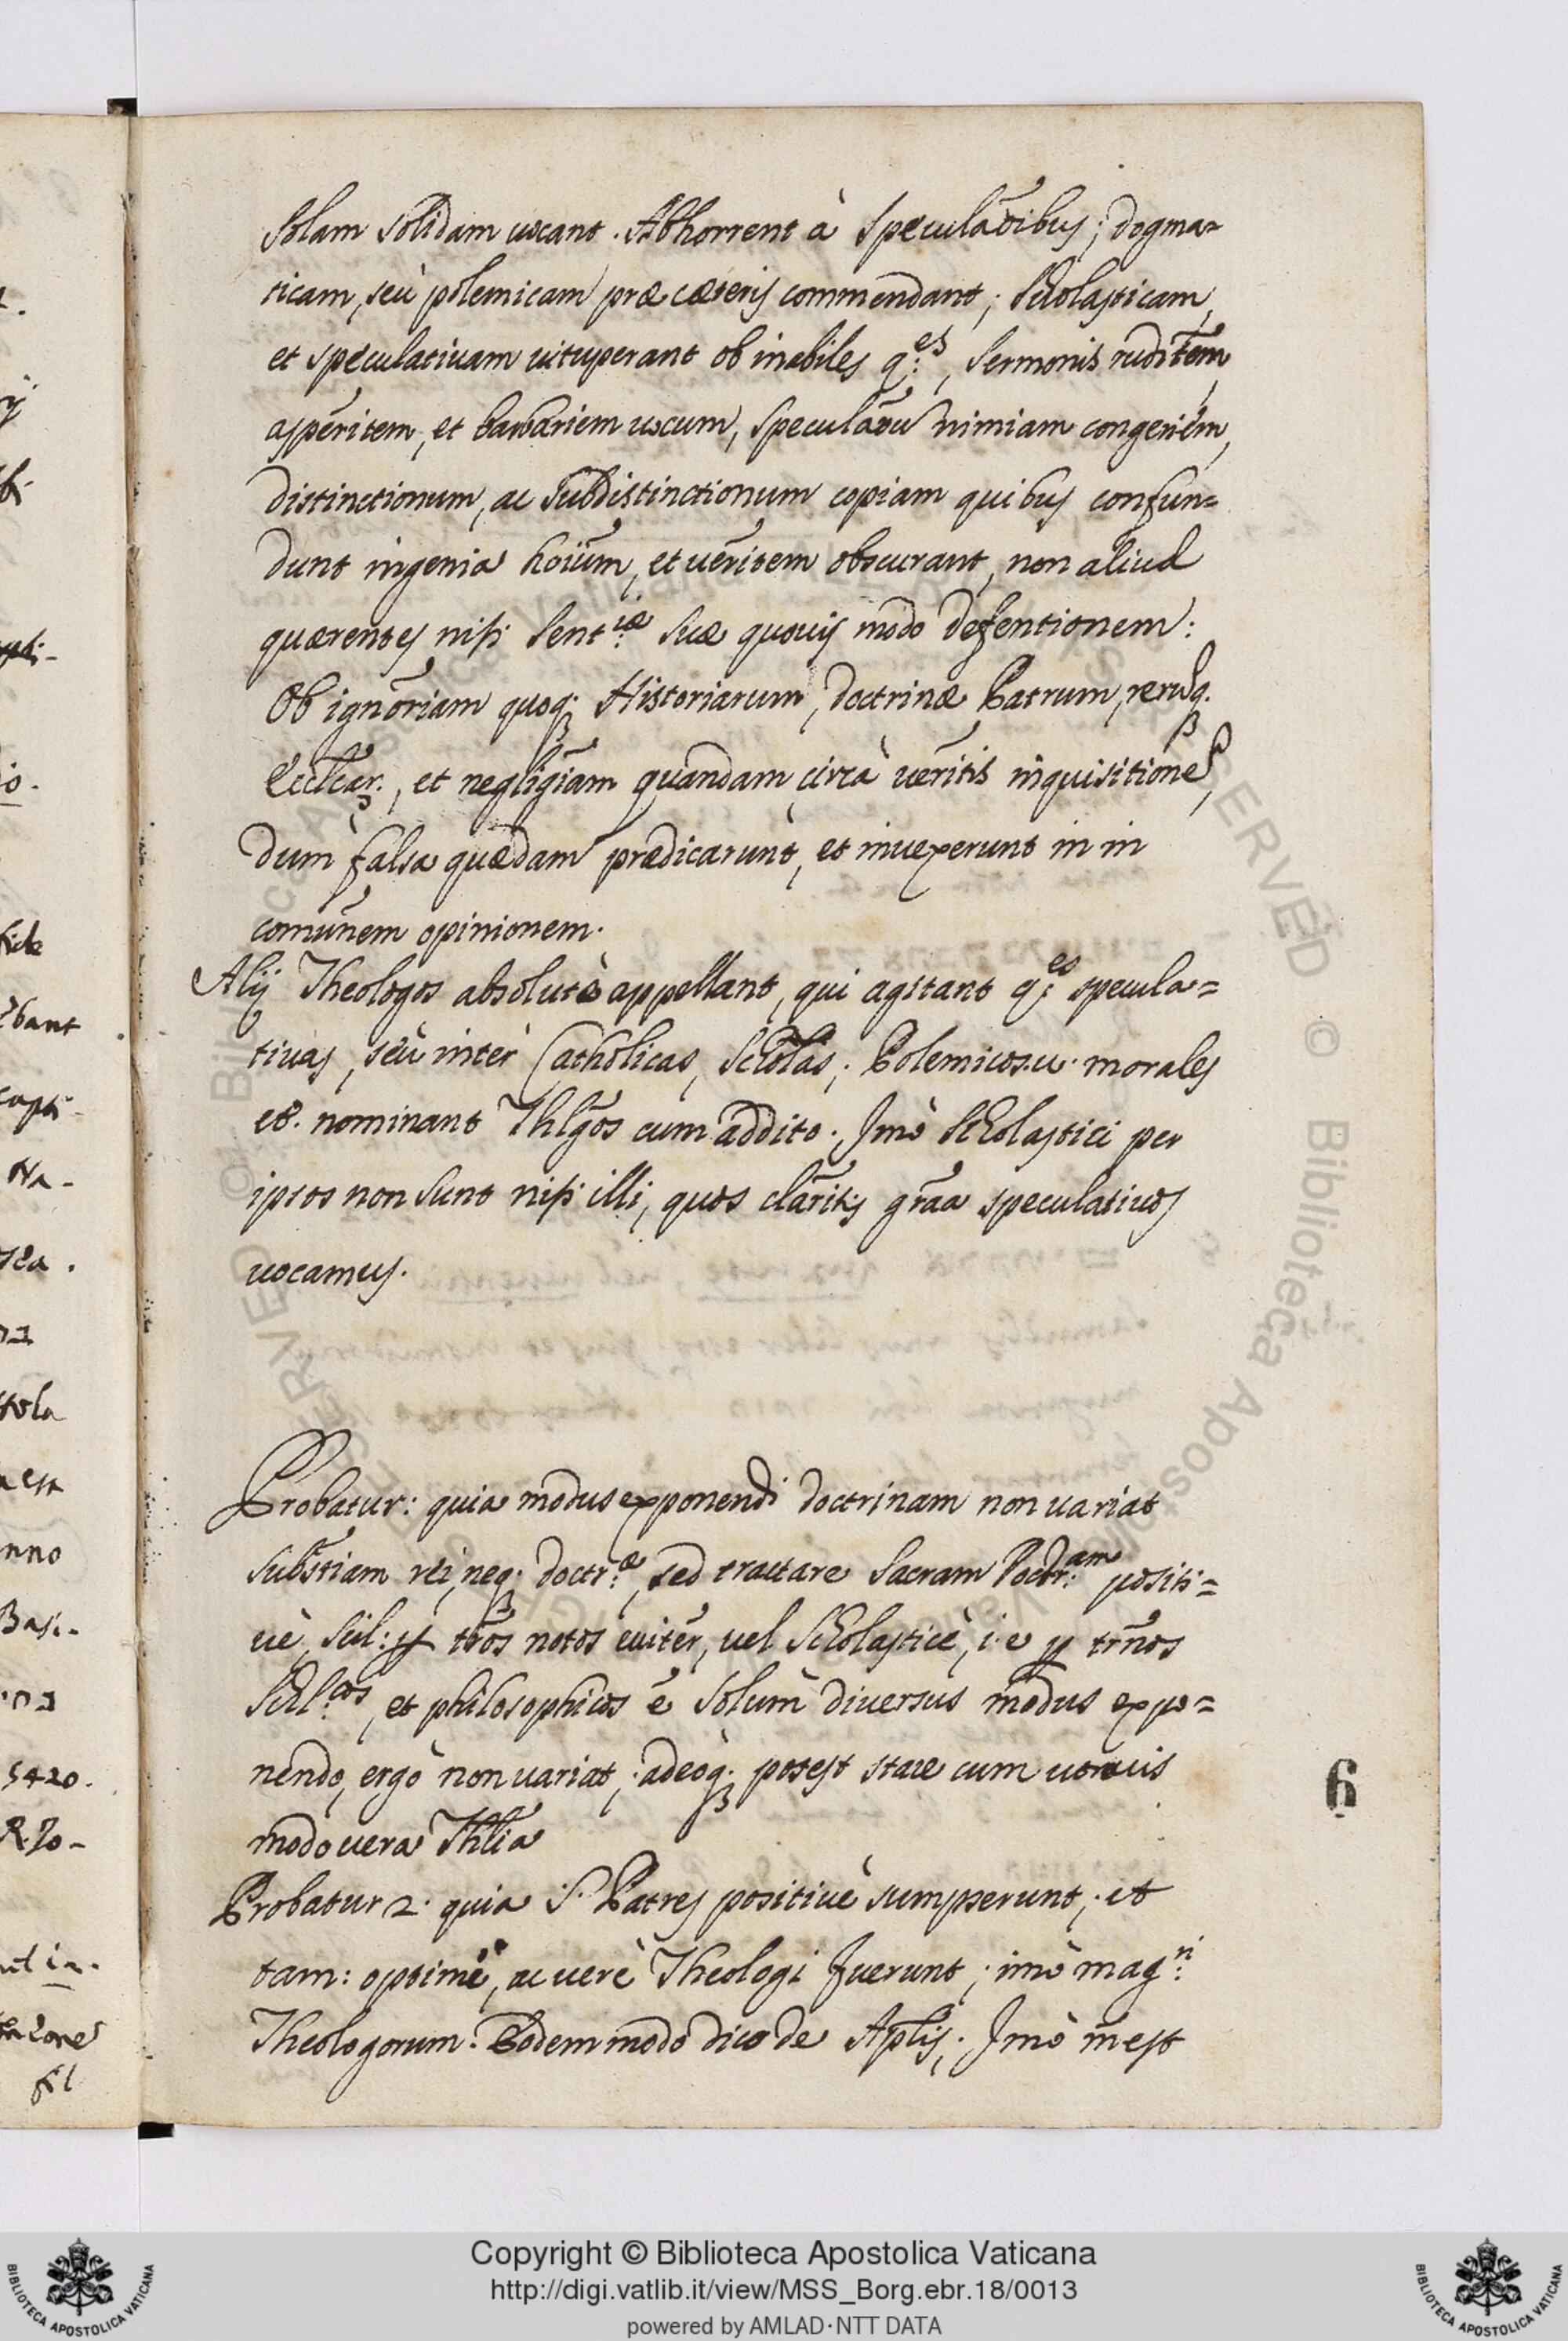 Solam solidam uocant. Abhorrent à speculãoibus; dogma=
ticam, seù polemicam præ cæteris commendant; Scholasticam,
et speculatiuam uituperant ob inabiles q:es, sermonis ruditẽm
aspẽritem, et barbariem uocum, speculãou nimiam congeriem,
distinctionum, ac subdistinctionum copiam quibus confun=
dunt ingenia hoĩum, et uẽritem obscurant, non aliud
quærentes nisi sent:iæ suæ quouis modo defentionem:
Ob ignõriam quoq; Historiarum, doctrinæ Patrum, rerũq;
Ecclãr., et negligĩam quandam circà uẽritis inquisitionẽ,
dum falsa quædam prædicarunt, et inuexerunt in in
comũnem opinionem.
Alij Theologos absolutè appellant, qui agitant q:es specula=
tiuas, seù inter Catholicas Scholas; Polemicos.u. morales
et. nominant Thlg̃os cum addito. Imò Scholastici per
ipsos non sunt nisi illi, quos clãritis grãa speculatiuos
uocamus.
Probatur: quia modus exponendi doctrinam non uariat
subst̃iam rei, neq; doctr:æ, sed tractare Sacram Doctr:am positi=
uè, scil: p tr̃os notos cuitẽr, uel Scholasticè, i.e p trm̃os
Schl:cos, et philosophicos ẽ solum diuersus modus expo=
nendo, ergò non uariat; adeòq; potest stare cum utrouis
modo uera Thlĩa
Probatur 2. quia S. Patres positiuè sumpserunt; et
tam: optimè, ac uerè Theologi fuerunt; imò mag:ri
Theologorum. Eodem modo dico de Apl̃is; Imò m̃ est
6
Copyright © Biblioteca Apostolica Vaticana
http://digi.vatlib.it/view/MSS_Borg.ebr.18/0013
powered by AMLAD·NTT DATA